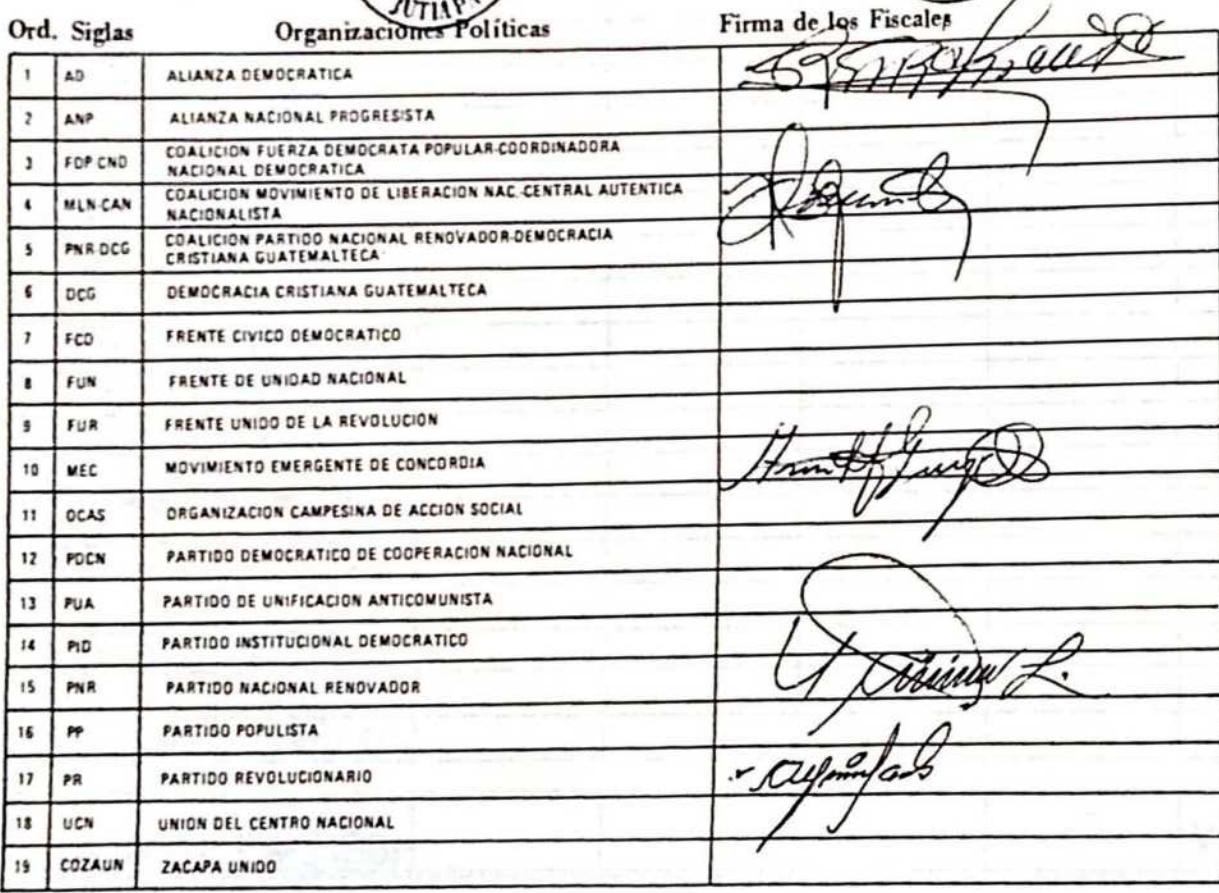 JUTIAPA
Ord. Siglas Organizaciones Políticas Firma de los Fiscales
1 AD ALIANZA DEMOCRATICA
2 ANP ALIANZA NACIONAL PROGRESISTA
3 FDP CND COALICION FUERZA DEMOCRATA POPULAR-COORDINADORA
NACIONAL DEMOCRATICA
4 MLN-CAN COALICION MOVIMIENTO DE LIBERACION NAC.-CENTRAL AUTENTICA
NACIONALISTA
5 PNR-DCG COALICION PARTIDO NACIONAL RENOVADOR-DEMOCRACIA
CRISTIANA GUATEMALTECA
6 DCG DEMOCRACIA CRISTIANA GUATEMALTECA
7 FCD FRENTE CIVICO DEMOCRATICO
8 FUN FRENTE DE UNIDAD NACIONAL
9 FUR FRENTE UNIDO DE LA REVOLUCION
10 MEC MOVIMIENTO EMERGENTE DE CONCORDIA
11 OCAS ORGANIZACION CAMPESINA DE ACCION SOCIAL
12 PDCN PARTIDO DEMOCRATICO DE COOPERACION NACIONAL
13 PUA PARTIDO DE UNIFICACION ANTICOMUNISTA
14 PID PARTIDO INSTITUCIONAL DEMOCRATICO
15 PNR PARTIDO NACIONAL RENOVADOR
16 PP PARTIDO POPULISTA
17 PR PARTIDO REVOLUCIONARIO
18 UCN UNION DEL CENTRO NACIONAL
19 COZAUN ZACAPA UNIDO